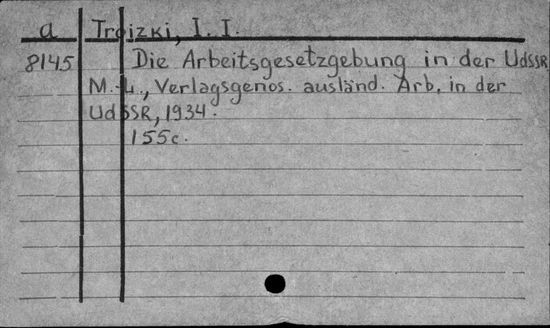 a Troizki, I. I.
8145 Die Arbeitsgesetzgebung in der UdSSR
M.-L., Verlagsgenos. ausländ. Arb. in der
UdSSR, 1934.
155c.